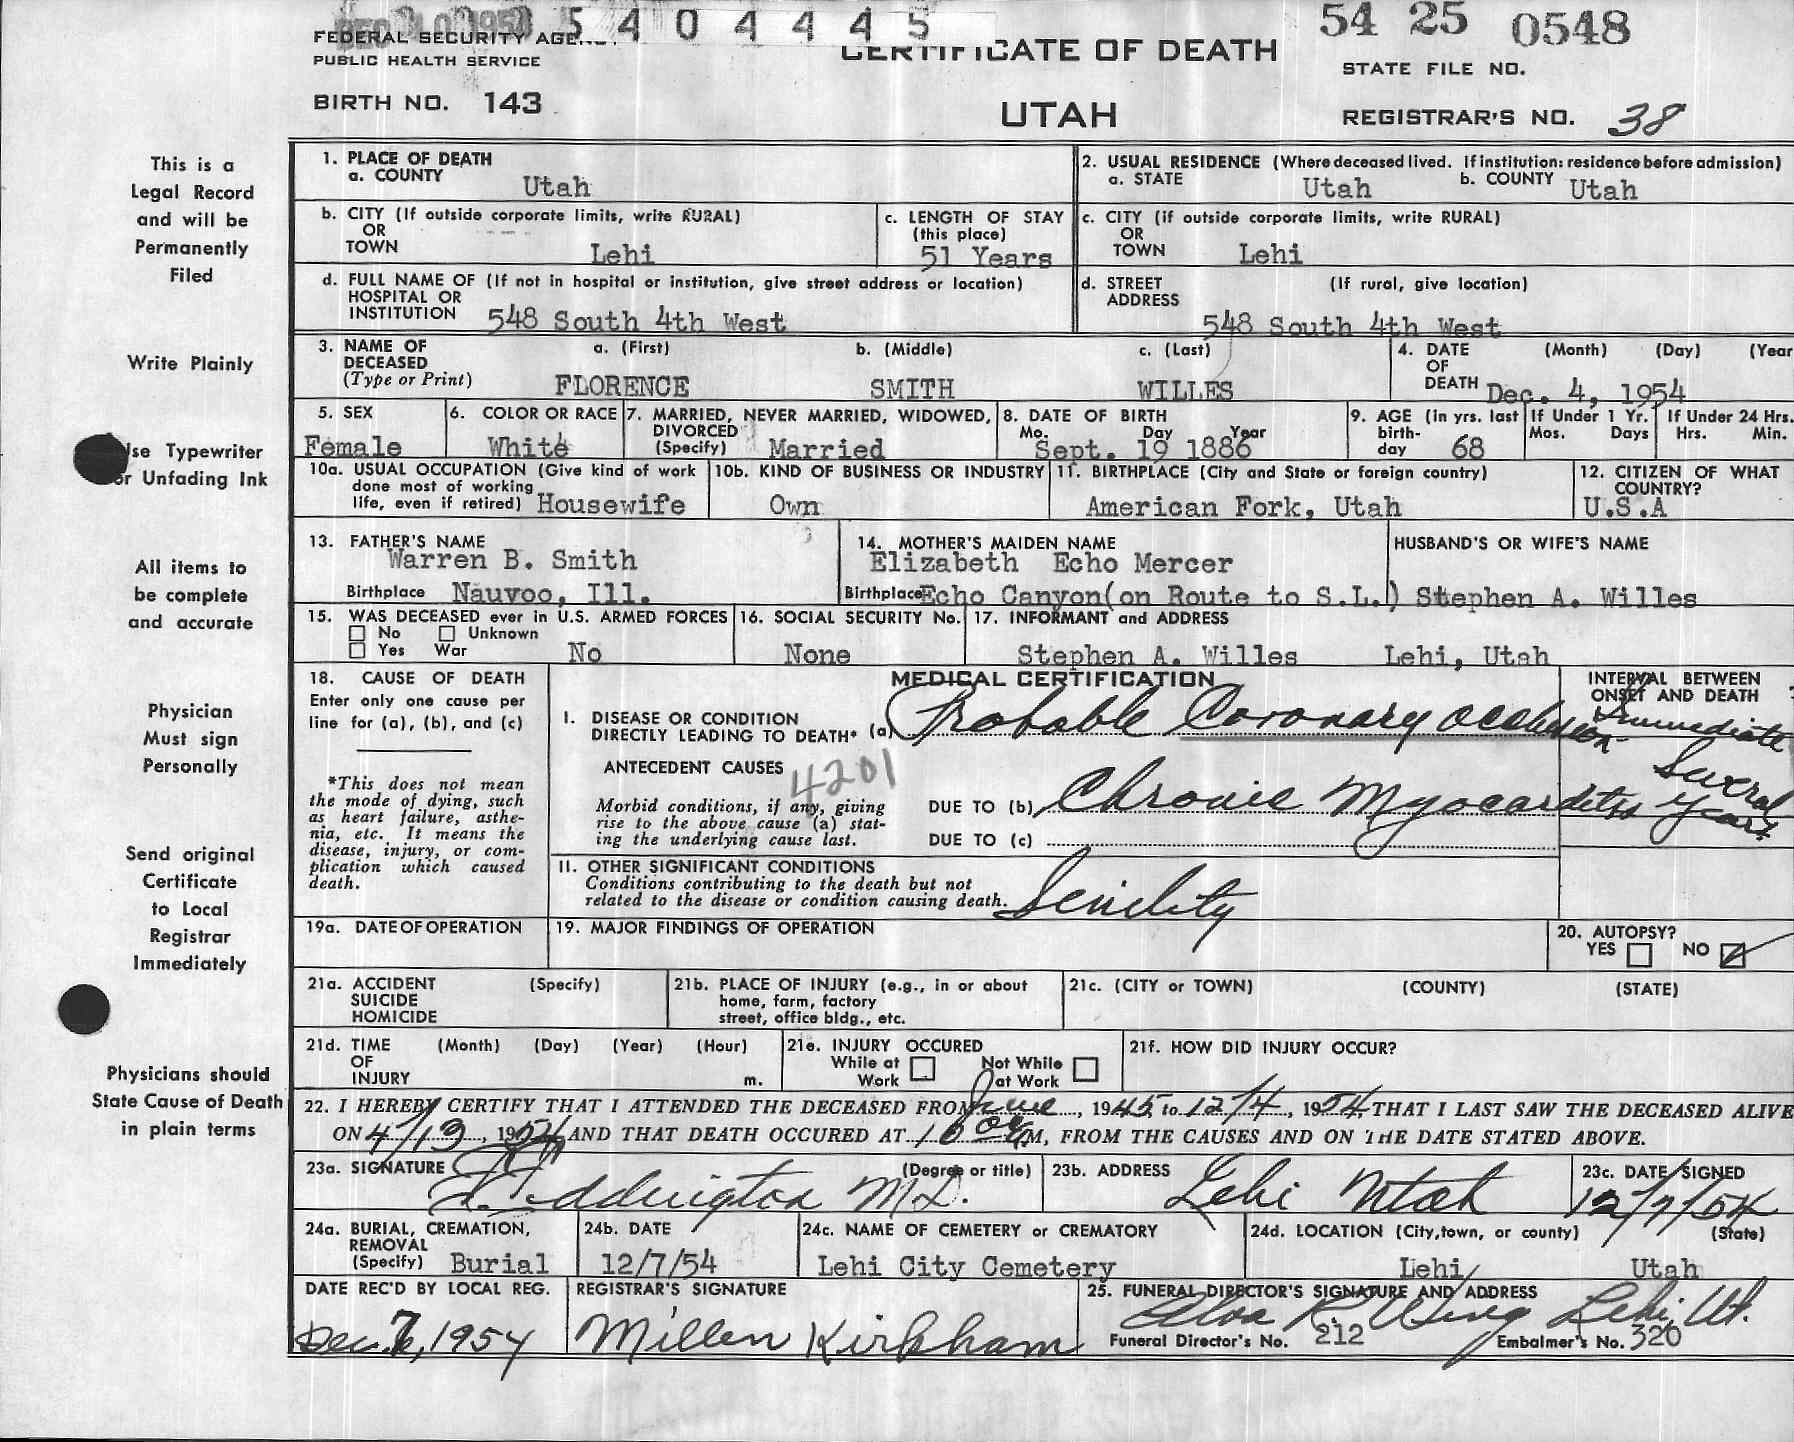 5404445
54 25 0548
FEDERAL SECURITY AGE
PUBLIC HEALTH SERVICE
CERTIFICATE OF DEATH
STATE FILE NO.
BIRTH NO. 143
UTAH
REGISTRAR'S NO. 38
This is a
Legal Record
and will be
Permanently
Filed
Write Plainly
se Typewriter
or Unfading Ink
All items to
be complete
and accurate
Physician
Must sign
Personally
Send original
Certificate
to Local
Registrar
Immediately
Physicians should
State Cause of Death
in plain terms
1. PLACE OF DEATH
a. COUNTY Utah
2. USUAL RESIDENCE (Where deceased lived. If institution: residence before admission)
a. STATE Utah b. COUNTY Utah
b. CITY (If outside corporate limits, write RURAL)
OR
TOWN Lehi
c. LENGTH OF STAY
(this place)
51 Years
c. CITY (if outside corporate limits, write RURAL)
OR
TOWN Lehi
d. FULL NAME OF (If not in hospital or institution, give street address or location)
HOSPITAL OR
INSTITUTION 548 South 4th West
d. STREET (If rural, give location)
ADDRESS
548 South 4th West
3. NAME OF a. (First) b. (Middle) c. (Last)
DECEASED
(Type or Print) FLORENCE SMITH WILLES
4. DATE (Month) (Day) (Year
OF
DEATH Dec. 4, 1954
5. SEX
Female
6. COLOR OR RACE
White
7. MARRIED, NEVER MARRIED, WIDOWED,
DIVORCED
(Specify) Married
8. DATE OF BIRTH
Mo. Day Year
Sept. 19 1886
9. AGE (in yrs. last
birth-
day 68
If Under 1 Yr.
Mos. Days
If Under 24 Hrs.
Hrs. Min.
10a. USUAL OCCUPATION (Give kind of work
done most of working
life, even if retired) Housewife
10b. KIND OF BUSINESS OR INDUSTRY
Own
11. BIRTHPLACE (City and State or foreign country)
American Fork, Utah
12. CITIZEN OF WHAT
COUNTRY?
U.S.A
13. FATHER'S NAME
Warren B. Smith
Birthplace Nauvoo, Ill.
14. MOTHER'S MAIDEN NAME
Elizabeth Echo Mercer
Birthplace Echo Canyon(on Route to S.L.)
HUSBAND'S OR WIFE'S NAME
Stephen A. Willes
15. WAS DECEASED ever in U.S. ARMED FORCES
No Unknown
Yes War No
16. SOCIAL SECURITY No.
None
17. INFORMANT and ADDRESS
Stephen A. Willes Lehi, Utah
18. CAUSE OF DEATH
Enter only one cause per
line for (a), (b), and (c)
*This does not mean
the mode of dying, such
as heart failure, asthe-
nia, etc. It means the
disease, injury, or com-
plication which caused
death.
MEDICAL CERTIFICATION
INTERVAL BETWEEN
ONSET AND DEATH
I. DISEASE OR CONDITION
DIRECTLY LEADING TO DEATH* (a) Probable Coronary Occlusion Immediate
ANTECEDENT CAUSES 4201
Morbid conditions, if any, giving
rise to the above cause (a) stat-
ing the underlying cause last.
DUE TO (b) Chronic Myocarditis Several years
DUE TO (c)
II. OTHER SIGNIFICANT CONDITIONS
Conditions contributing to the death but not
related to the disease or condition causing death. Senility
19a. DATE OF OPERATION
19. MAJOR FINDINGS OF OPERATION
20. AUTOPSY?
YES NO
21a. ACCIDENT (Specify)
SUICIDE
HOMICIDE
21b. PLACE OF INJURY (e.g., in or about
home, farm, factory
street, office bldg., etc.
21c. (CITY or TOWN) (COUNTY) (STATE)
21d. TIME (Month) (Day) (Year) (Hour)
OF
INJURY m.
21e. INJURY OCCURED
While at Not While
Work at Work
21f. HOW DID INJURY OCCUR?
22. I HEREBY CERTIFY THAT I ATTENDED THE DECEASED FROM June, 1945 to 12/4, 1954 THAT I LAST SAW THE DECEASED ALIVE
ON 4/13, 1954 AND THAT DEATH OCCURED AT M, FROM THE CAUSES AND ON THE DATE STATED ABOVE.
23a. SIGNATURE (Degree or title)
Eddington M.D.
23b. ADDRESS Lehi Utah
23c. DATE SIGNED
12/7/54
24a. BURIAL, CREMATION,
REMOVAL
(Specify) Burial
24b. DATE
12/7/54
24c. NAME OF CEMETERY or CREMATORY
Lehi City Cemetery
24d. LOCATION (City,town, or county) (State)
Lehi Utah
DATE REC'D BY LOCAL REG.
Dec. 7, 1954
REGISTRAR'S SIGNATURE
Millen Kirkham
25. FUNERAL DIRECTOR'S SIGNATURE AND ADDRESS
Elva R. Wing Lehi, Ut.
Funeral Director's No. 212 Embalmer's No. 320